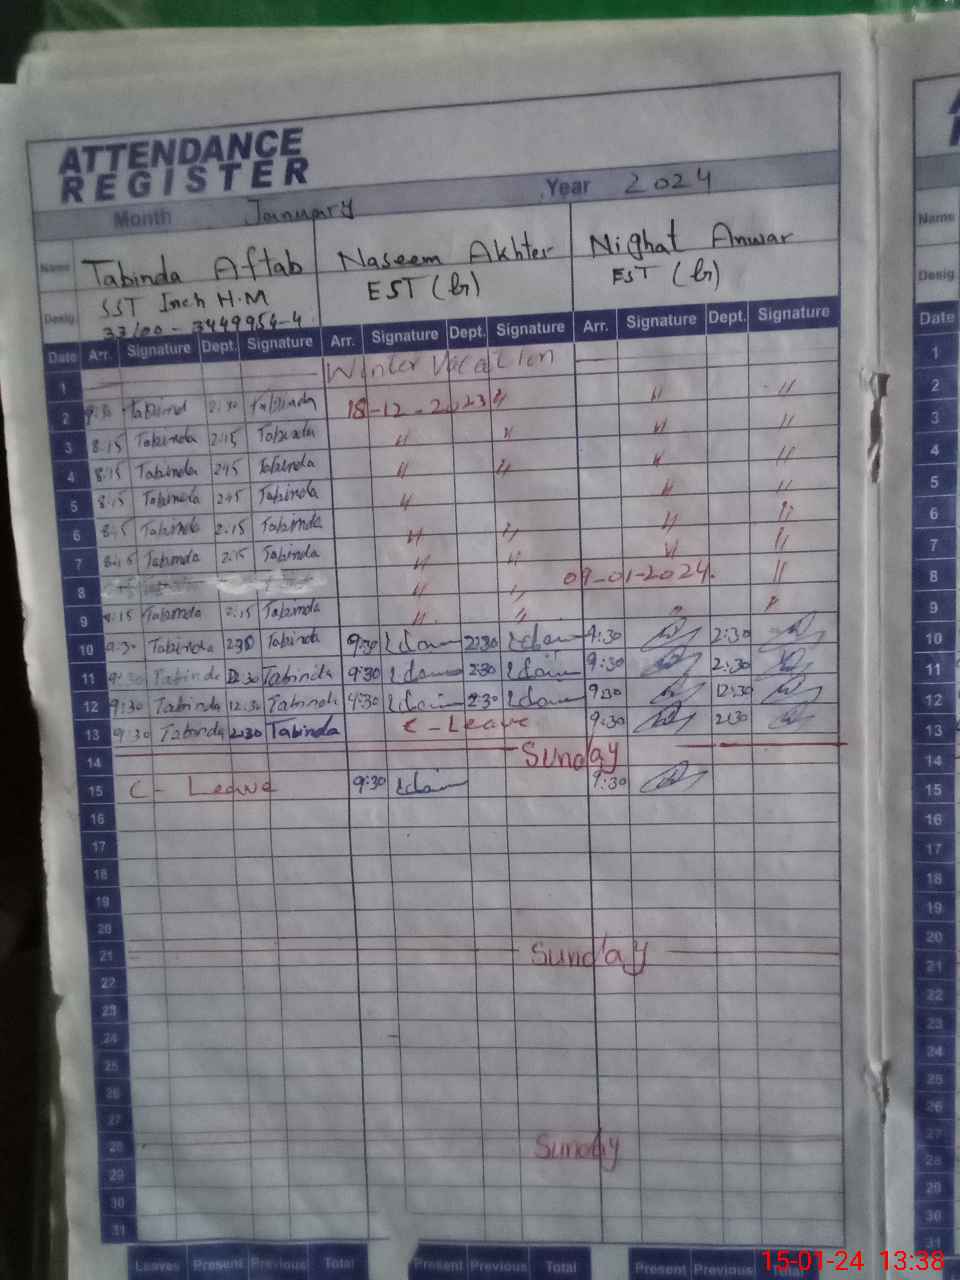 ATTENDANCE
REGISTER
Month January Year 2024
Name Tabinda Aftab Naseem Akhter Nighat Anwar Name
Desig. SST Inch H.M EST (G) EST (G) Desig.
Date Arr. Signature Dept. Signature Arr. Signature Dept. Signature Arr. Signature Dept. Signature Date
1 Winter Vacation 1
2 9:30 Tabinda 2:30 Tabinda 18-12-2023 " " " 2
3 8:15 Tabinda 2:15 Tabinda " " " " 3
4 8:15 Tabinda 2:15 Tabinda " " " " 4
5 8:15 Tabinda 2:15 Tabinda " " " 5
6 8:15 Tabinda 2:15 Tabinda " " " " 6
7 8:15 Tabinda 2:15 Tabinda " " " " 7
8 " " 09-01-2024. " 8
9 8:15 Tabinda 2:15 Tabinda " " " " 9
10 9:30 Tabinda 2:30 Tabinda 9:30 2:30 9:30 2:30 10
11 9:30 Tabinda 12:30 Tabinda 9:30 2:30 9:30 2:30 11
12 9:30 Tabinda 12:30 Tabinda 9:30 2:30 9:30 12:30 12
13 9:30 Tabinda 2:30 Tabinda C-Leave 9:30 2:30 13
14 Sunday 14
15 C- Leave 9:30 9:30 15
16 16
17 17
18 18
19 19
20 20
21 Sunday 21
22 22
23 23
24 24
25 25
26 26
27 27
28 Sunday 28
29 29
30 30
31 31
Leaves Present Previous Total Present Previous Total Present Previous Total
15-01-24 13:38